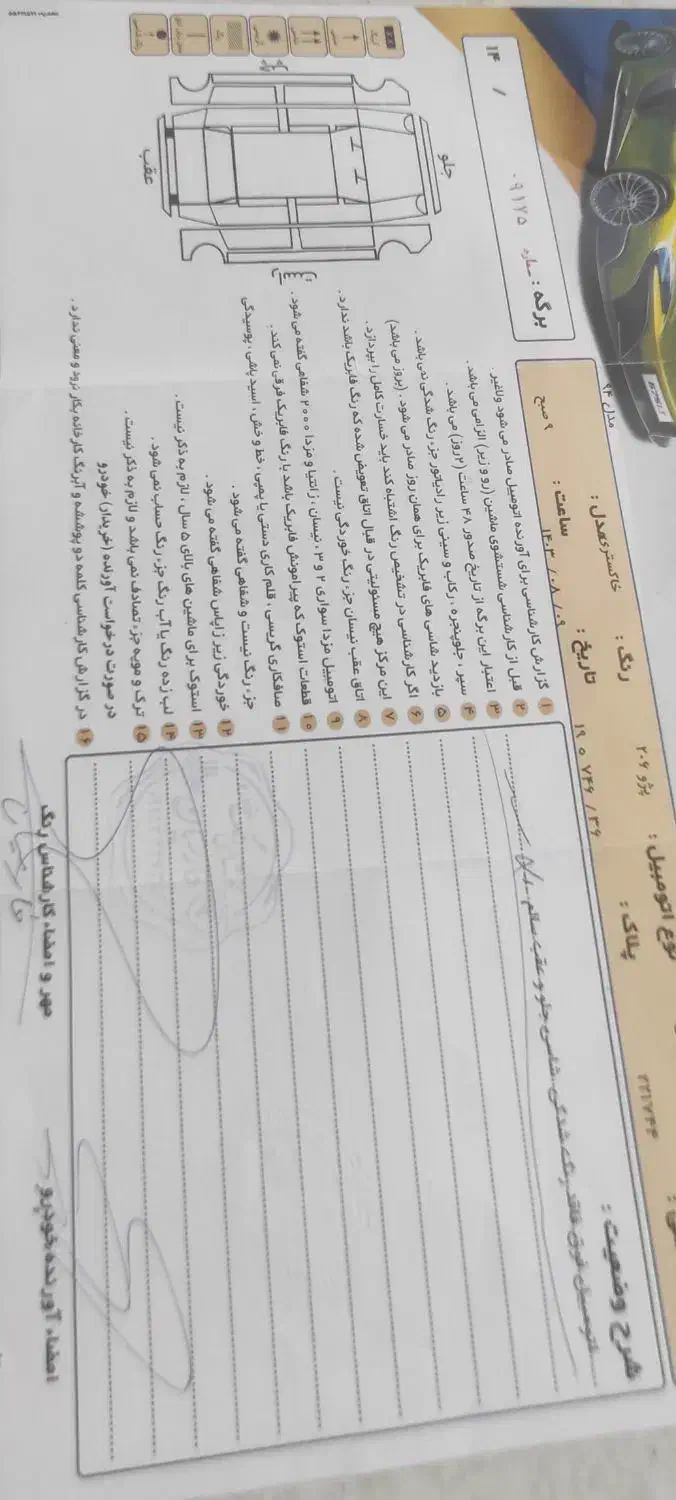 برگه : شماره ۰۹۱۷۵
۱۴ /
جلو
عقب
نوع اتومبیل : پژو ۲۰۶
رنگ : خاکستری
مدل : مدل ۹۴
پلاک : ۱۹ ۵ ۷۴۶ / ۳۶
تاریخ : ۱۴۰۳ / ۰۸ / ۰۹
ساعت : ۹ صبح
شرح وضعیت :
اتومبیل فوق فاقد رنگ شدگی شاسی جلو و عقب سالم
۱ گزارش کارشناسی برای آورنده اتومبیل صادر می شود ولاغیر .
۲ قبل از کارشناسی شستشوی ماشین (رو و زیر) الزامی می باشد .
۳ اعتبار این برگه از تاریخ صدور ۴۸ ساعت (۲روز) می باشد .
۴ سپر ، جلوپنجره ، رکاب و سینی زیر رادیاتور جزء رنگ شدگی نمی باشد .
۵ بازدید شاسی های فابریک برای همان روز صادر می شود . (بروز می باشد)
۶ اگر کارشناسی در تشخیص رنگ اشتباه کند باید خسارت کامل را بپردازد .
۷ این مرکز هیچ مسئولیتی در قبال اتاق تعویض شده که رنگ فابریک باشد ندارد .
۸ اتاق عقب نیسان جزء رنگ خوردگی نیست .
۹ اتومبیل مزدا سواری ۲ و ۳ ، نیسان ، زانتیا و مزدا ۲۰۰۰ شفاهی گفته می شود .
۱۰ قطعات استوک که پیرامونش فابریک باشد با رنگ فابریک فرقی نمی کند .
۱۱ صافکاری گریسی ، قلم کاری دستی یا پمپی ، خط و خش ، اسید پاشی ، پوسیدگی
جزء رنگ نیست و شفاهی گفته می شود .
۱۲ خوردگی زیر زاپاس شفاهی گفته می شود .
۱۳ استوک برای ماشین های بالای ۵ سال ، لازم به ذکر نیست .
۱۴ لب زده رنگ یا آب رنگ جزء رنگ حساب نمی شود .
۱۵ ترک و مویه جزء تصادف نمی باشد و لازم به ذکر نیست .
در صورت درخواست آورنده (خریدار) خودرو
۱۶ در گزارش کارشناسی کلمه دو پوششه و آبرنگ کارخانه بکار نرود و معنی ندارد .
مهر و امضاء کارشناس رنگ
امضاء آورنده خودرو